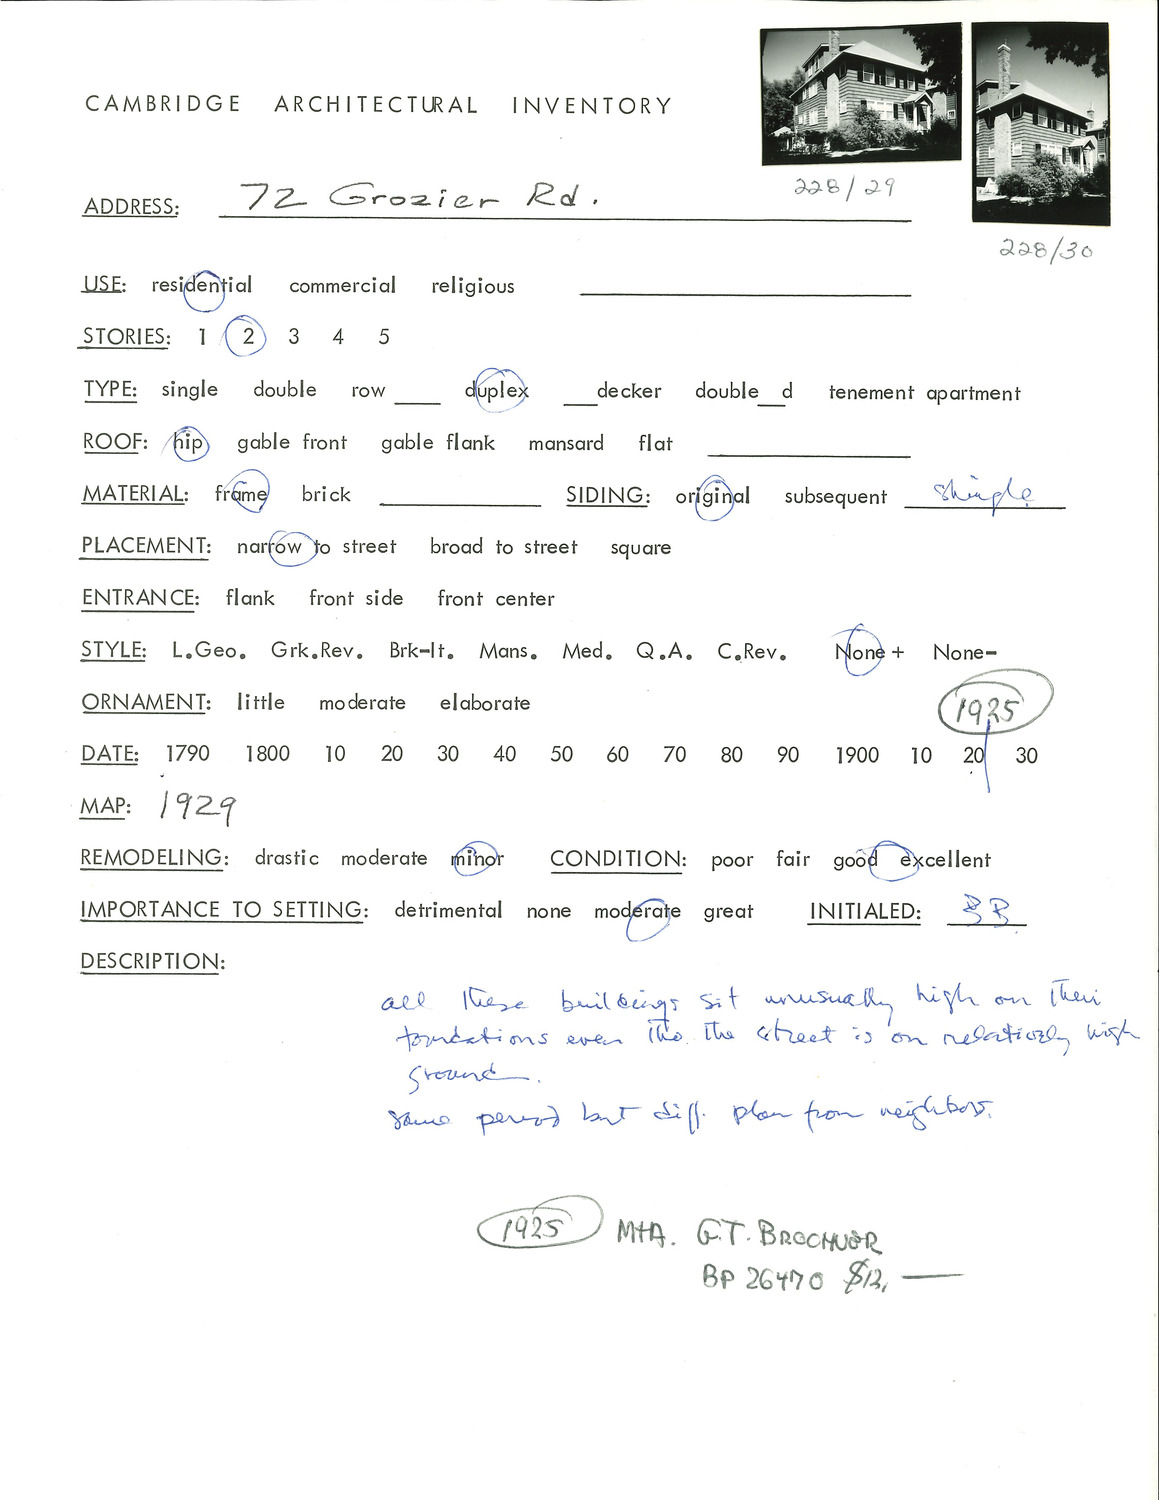 CAMBRIDGE ARCHITECTURAL INVENTORY
228/29
228/30
ADDRESS: 72 Grozier Rd.
USE: residential commercial religious
STORIES: 1 2 3 4 5
TYPE: single double row ___ duplex ___decker double__d tenement apartment
ROOF: hip gable front gable flank mansard flat
MATERIAL: frame brick SIDING: original subsequent shingle
PLACEMENT: narrow to street broad to street square
ENTRANCE: flank front side front center
STYLE: L.Geo. Grk.Rev. Brk-It. Mans. Med. Q.A. C.Rev. None+ None-
ORNAMENT: little moderate elaborate 1925
DATE: 1790 1800 10 20 30 40 50 60 70 80 90 1900 10 20 30
MAP: 1929
REMODELING: drastic moderate minor CONDITION: poor fair good excellent
IMPORTANCE TO SETTING: detrimental none moderate great INITIALED: BB
DESCRIPTION:
all these buildings sit unusually high on their
foundations even tho. the street is on relatively high
ground.
same period but diff. plan from neighbors.
1925 G.T.
BP 26470 $12,—